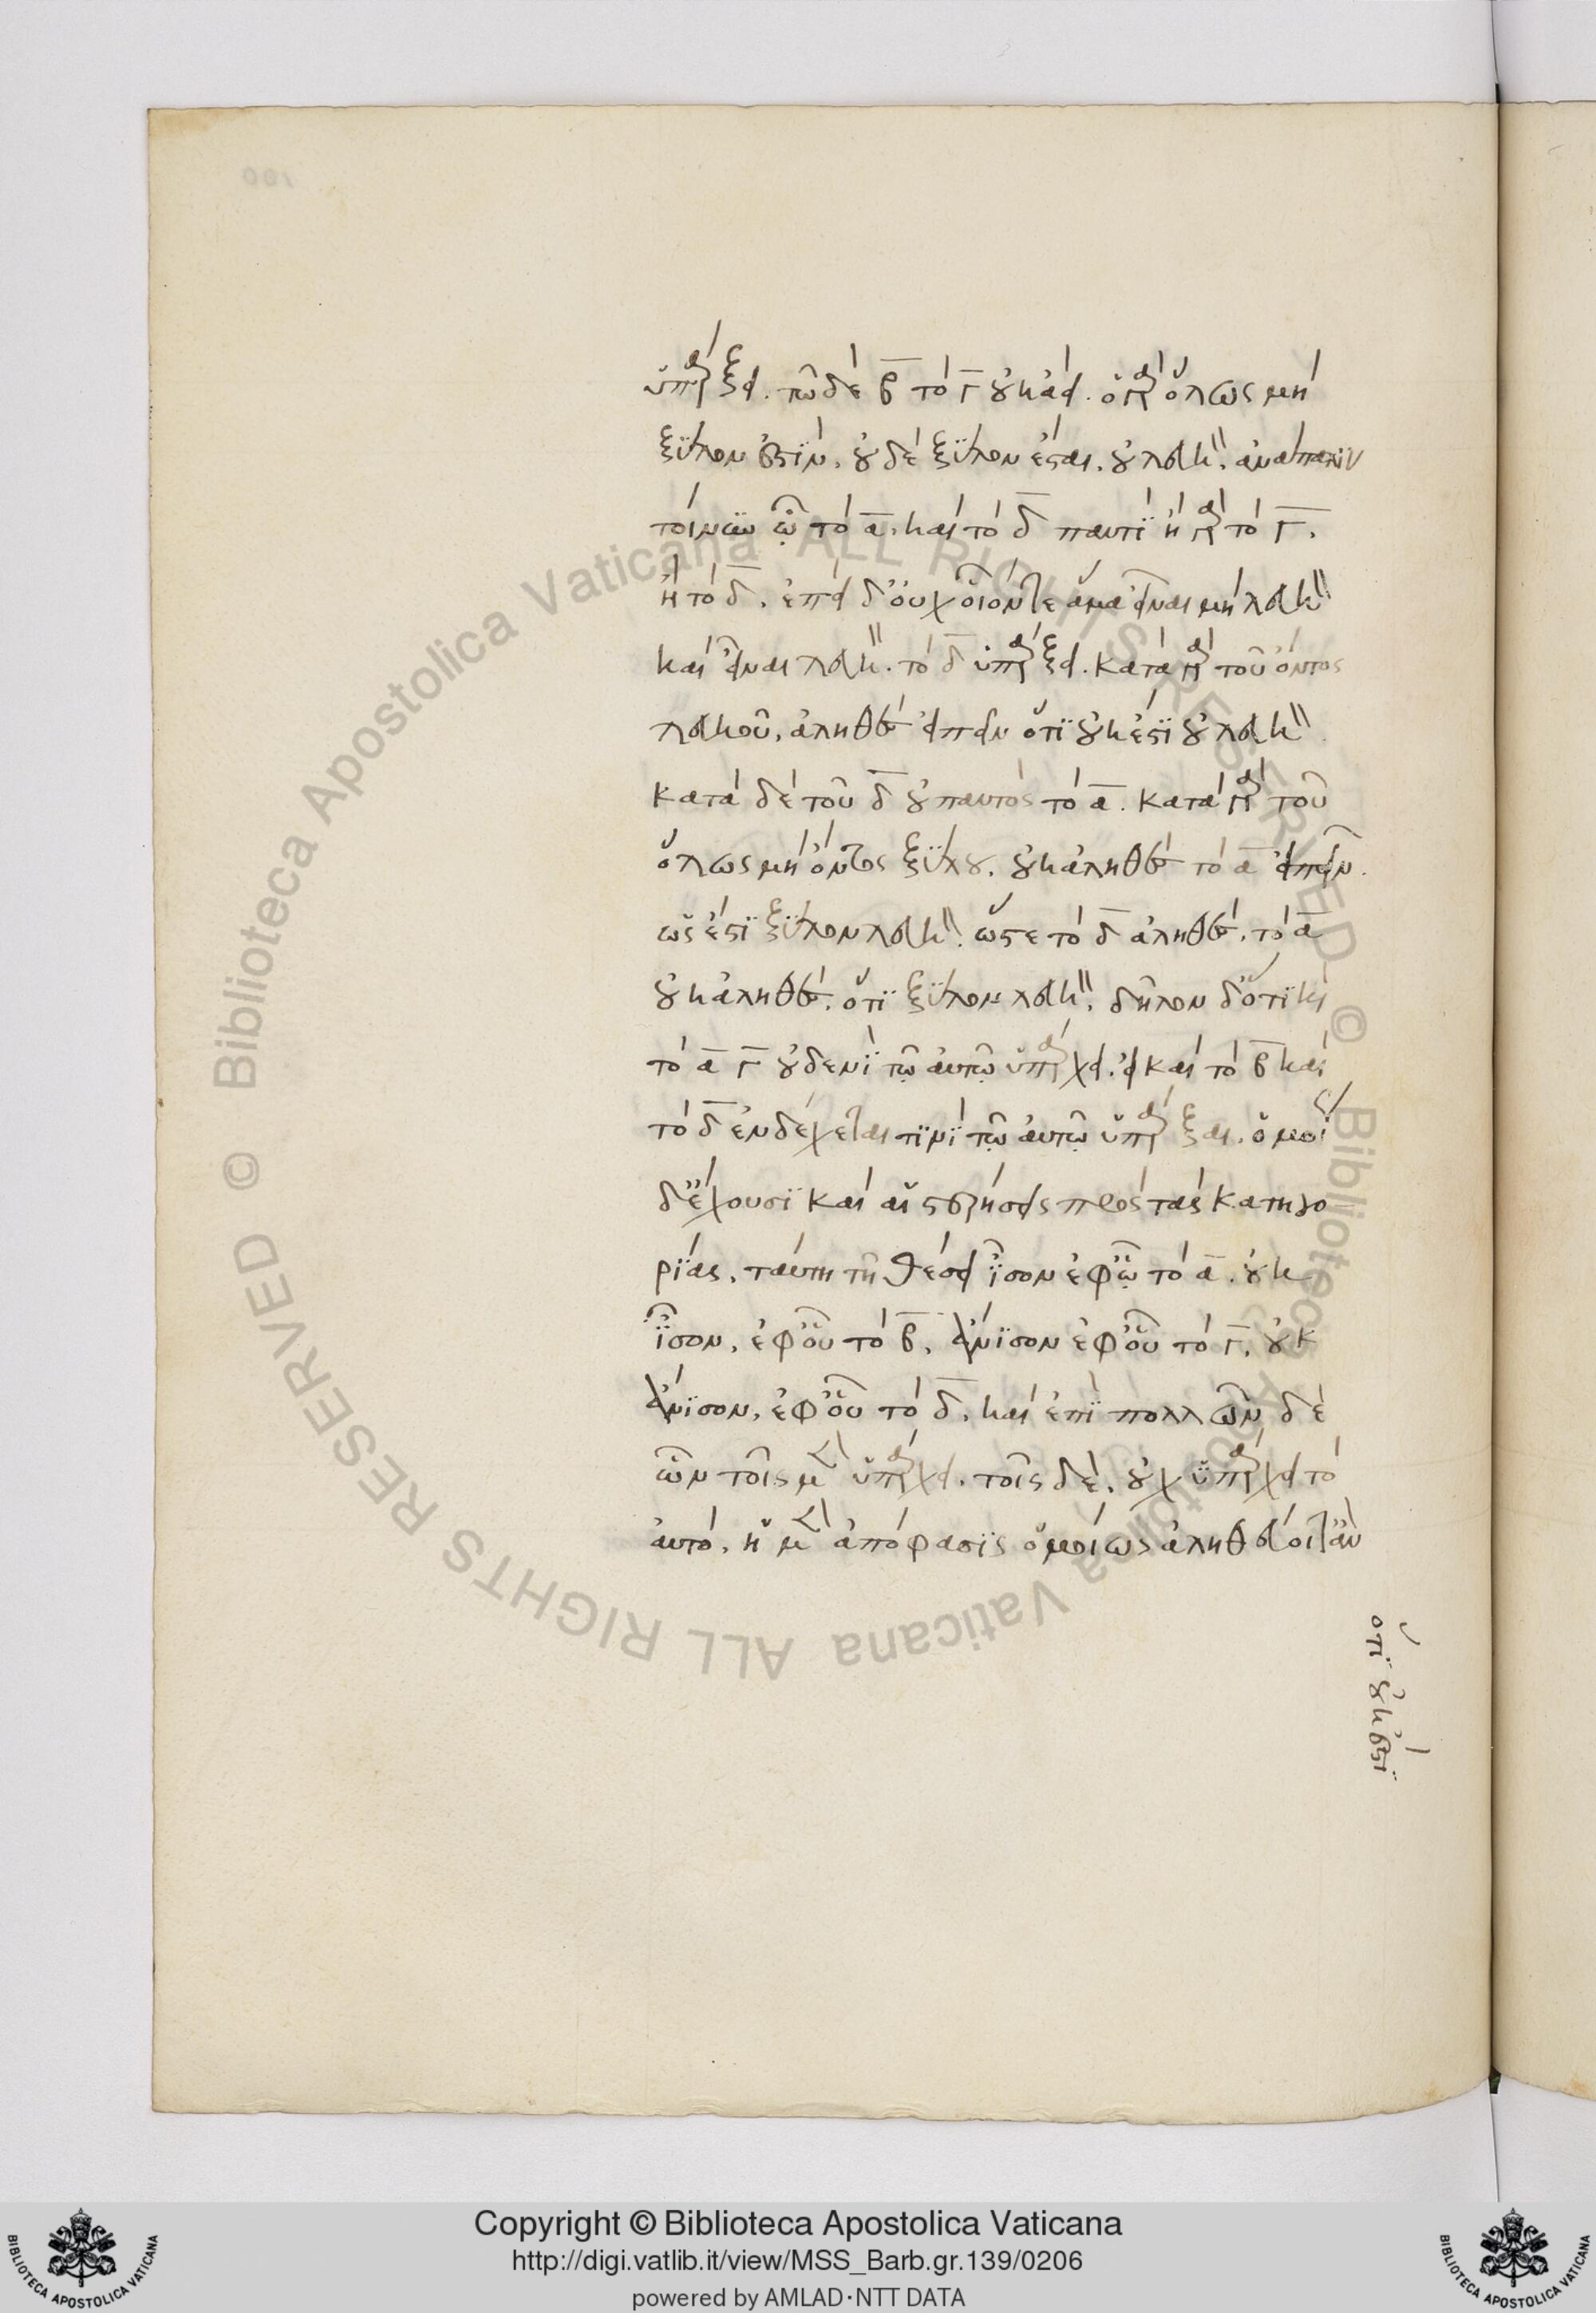 ὑπάρξει. τῷ δὲ β̅ τὸ γ̅ οὐκ ἀεί. ὃ γὰρ ὅλως μὴ
ξύλον ἐστὶν, οὐδὲ ξύλον ἔσται οὐ λευκόν. ἀνάπαλιν
τοίνυν ᾧ τὸ α̅, καὶ τὸ δ̅ παντὶ ἢ γὰρ τὸ γ̅.
ἢ τὸ δ̅. ἐπεὶ δ' οὐχ οἷόν τε ἅμα εἶναι μὴ λευκὸν
καὶ εἶναι λευκόν. τὸ δ̅ ὑπάρξει. κατὰ γὰρ τοῦ ὄντος
λευκοῦ, ἀληθὲς εἰπεῖν ὅτι οὐκ ἔστι οὐ λευκόν
κατὰ δὲ τοῦ δ̅ οὐ παντὸς τὸ α̅. κατὰ γὰρ τοῦ
ὅλως μὴ ὄντος ξύλου, οὐκ ἀληθὲς τὸ α̅ εἰπεῖν.
ὡς ἔστι ξύλον λευκόν. ὥστε τὸ δ̅ ἀληθὲς, τὸ α̅
οὐκ ἀληθὲς. ὅτι ξύλον λευκόν. δῆλον δ' ὅτι καὶ
τὸ α̅ γ̅ οὐδενὶ τῷ αὐτῷ ὑπάρχει. εἰ καὶ τὸ β̅ καὶ
τὸ δ̅ ἐνδέχεται τινὶ τῷ αὐτῷ ὑπάρξαι. ὁμοίως
δ' ἔχουσι καὶ αἱ στερήσεις πρὸς τὰς κατηγο
ρίας, ταύτῃ τῇ θέσει ἴσον ἐφ' ᾧ τὸ α̅. οὐκ
ἴσον, ἐφ' οὗ τὸ β̅, ἄνισον ἐφ' οὗ τὸ γ̅, οὐκ
ἄνισον, ἐφ' οὗ τὸ δ̅, καὶ ἐπὶ πολλῶν δὲ
ὧν τοῖς μὲν ὑπάρχει. τοῖς δὲ, οὐχ ὑπάρχει τὸ
αὐτό, ἡ μὲν ἀπόφασις ὁμοίως ἀληθεύοιτ' ἂν
ὅτι οὐκ ἔστι
Copyright © Biblioteca Apostolica Vaticana
http://digi.vatlib.it/view/MSS_Barb.gr.139/0206
powered by AMLAD·NTT DATA